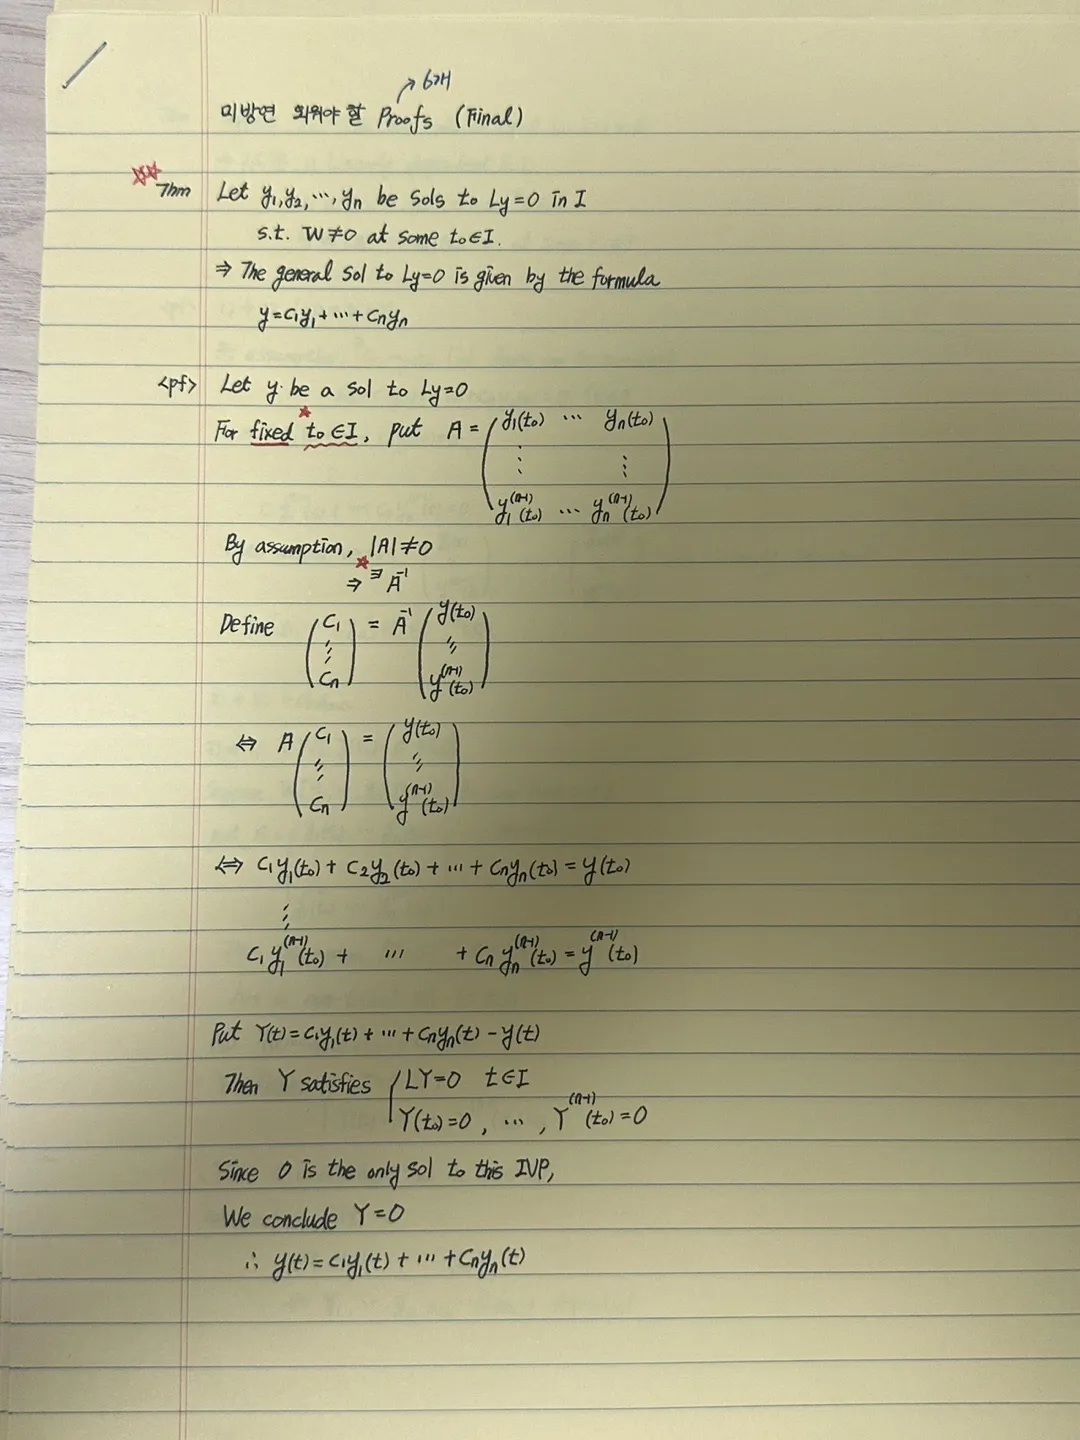 ↗ 6개
미방연 외워야 할 Proofs (Final)
☆☆
Thm Let y₁, y₂, ⋯, yₙ be sols to Ly=0 in I
s.t. W≠0 at some t₀∈I.
⇒ The general sol to Ly=0 is given by the formula
y=c₁y₁+⋯+cₙyₙ
<pf> Let y be a sol to Ly=0
For fixed t₀∈I, put A = ( y₁(t₀) ⋯ yₙ(t₀)
⋮ ⋮
y₁⁽ⁿ⁻¹⁾(t₀) ⋯ yₙ⁽ⁿ⁻¹⁾(t₀) )
By assumption, |A|≠0
⇒ ∃ A⁻¹
Define ( c₁ ⋮ cₙ ) = A⁻¹ ( y(t₀) ⋮ y⁽ⁿ⁻¹⁾(t₀) )
⇔ A ( c₁ ⋮ cₙ ) = ( y(t₀) ⋮ y⁽ⁿ⁻¹⁾(t₀) )
⇔ c₁y₁(t₀) + c₂y₂(t₀) + ⋯ + cₙyₙ(t₀) = y(t₀)
⋮
c₁y₁⁽ⁿ⁻¹⁾(t₀) + ⋯ + cₙyₙ⁽ⁿ⁻¹⁾(t₀) = y⁽ⁿ⁻¹⁾(t₀)
Put Y(t) = c₁y₁(t) + ⋯ + cₙyₙ(t) − y(t)
Then Y satisfies { LY=0 t∈I
Y(t₀)=0, ⋯, Y⁽ⁿ⁻¹⁾(t₀)=0
Since 0 is the only sol to this IVP,
We conclude Y=0
∴ y(t) = c₁y₁(t) + ⋯ + cₙyₙ(t)